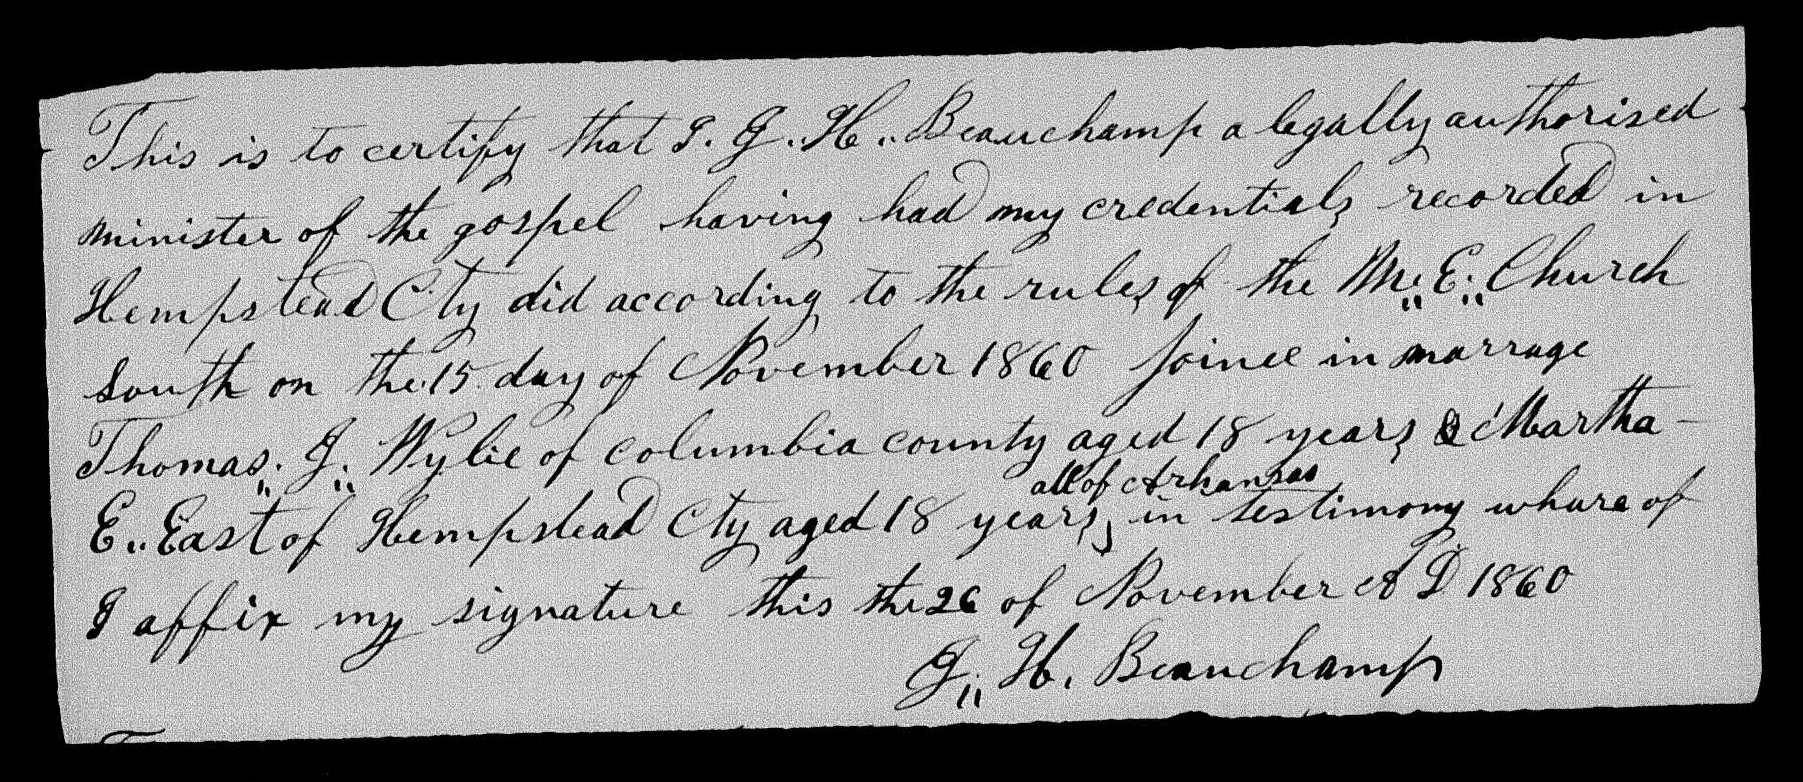 This is to certify that I. J. H. Beauchamp a legally authorised
minister of the gospel having had my credentials recorded in
Hempstead Cty did according to the rules of the M. E. Church
South on the 15 day of November 1860 joined in marrage
Thomas. J. Wylie of columbia county aged 18 years & Martha
all of Arkansas
E. East of Hempstead Cty aged 18 years, in testimony whare of
I affix my signature this the 26 of November A D 1860
J. H. Beauchamp